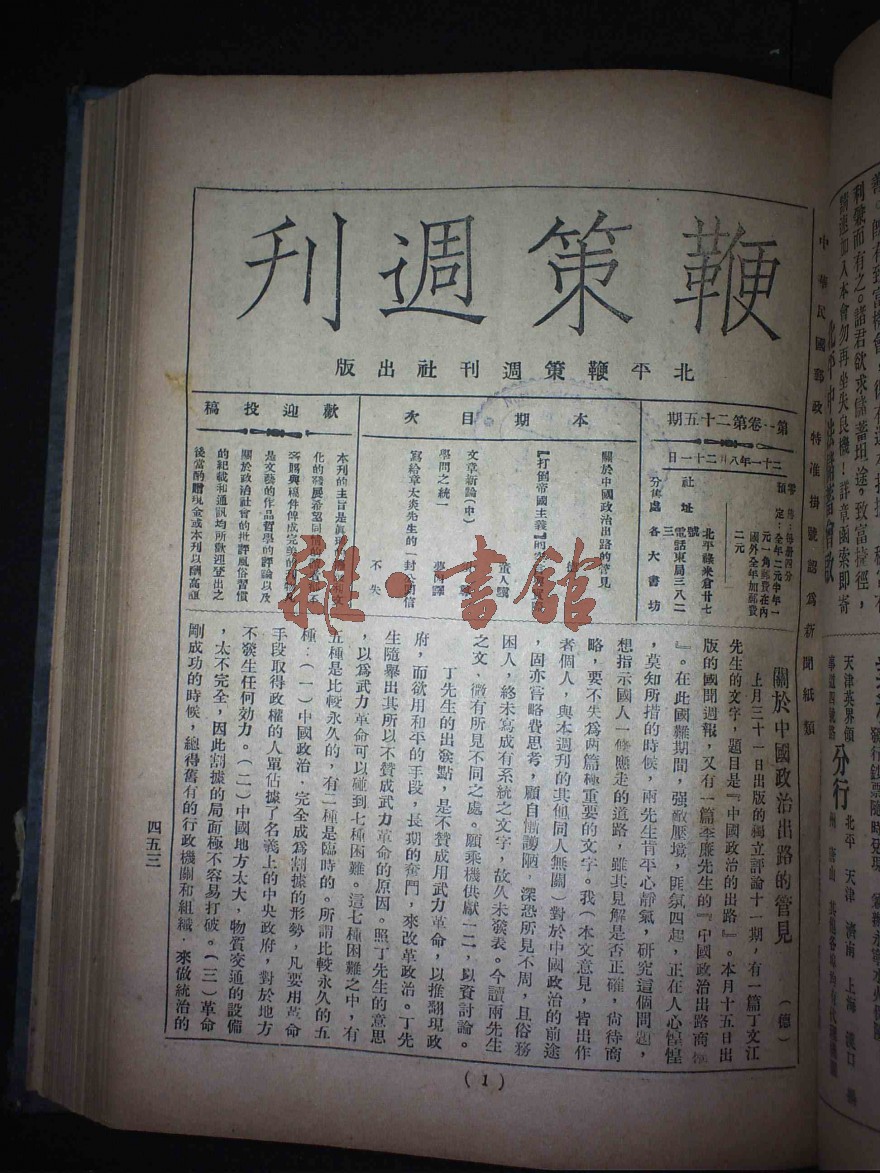 鞭策週刊
北平鞭策週刊社出版
第一卷第二十五期
二十一年八月二十一日
零售：每册四分
預定：全年二元半年一
元一角郵費在內
國外全年加郵費
二元
社址
北平祿米倉廿七
號
電話東局三八二
三
分售處 各大書坊
本期目次
關於中國政治出路的管見
『打倒帝國主義』
文章新論（中）
學問之統一
寫給章太炎先生的一封公開信
不失
歡迎投稿
本刊的主旨是
化的發展希望同
客賜與稿件俾成完美的
是文藝的作品哲學的評論以及
關於政治社會的批評風俗習慣
的紀載和通訊均所歡迎登出之
後當酌贈現金或本刊以酬高誼
關於中國政治出路的管見 （德）
上月三十一日出版的獨立評論十一期，有一篇丁文江
先生的文字，題目是『中國政治的出路』。本月十五日出
版的國聞週報，又有一篇季廉先生的『中國政治出路商榷
』。在此國難期間，強敵壓境，匪氛四起，正在人心惶惶
，莫知所措的時候，兩先生肯平心靜氣，研究這個問題，
想指示國人一條應走的道路，雖其見解是否正確，尙待商
略，要不失爲兩篇極重要的文字。我（本文意見，皆出作
者個人，與本週刊的其他同人無關）對於中國政治的前途
，固亦嘗略費思考，顧自慚譾陋，深恐所見不周，且俗務
困人，終未寫成有系統之文字，故久未發表。今讀兩先生
之文，微有所見不同之處，願乘機供獻一二，以資討論。
丁先生的出發點，是不贊成用武力革命，以推翻現政
府，而欲用和平的手段，長期的奮鬥，來改革政治。丁先
生隨舉出其所以不贊成武力革命的原因。照丁先生的意思
，以爲武力革命可以碰到七種困難。這七種困難之中，有
五種是比較永久的，有二種是臨時的。所謂比較永久的五
種：（一）中國政治，完全成爲割據的形勢，凡要用革命
手段取得政權的人單佔據了名義上的中央政府，對於地方
不發生任何効力。（二）中國地方太大，物質交通的設備
，太不完全，因此割據的局面極不容易打破。（三）革命
剛成功的時候，總得舊有的行政機關和組織，來做統治的
四五三
（1）
中華民國郵政特准掛號認爲新聞紙類
利孳而有之。諸君欲求儲蓄坦途。致富捷徑，
請速加入本會勿再坐失良機！詳章函索即寄
北平中法儲蓄會啟
天津英界領
分行
北平 天津 濟南 上海 漢口
雜·書館